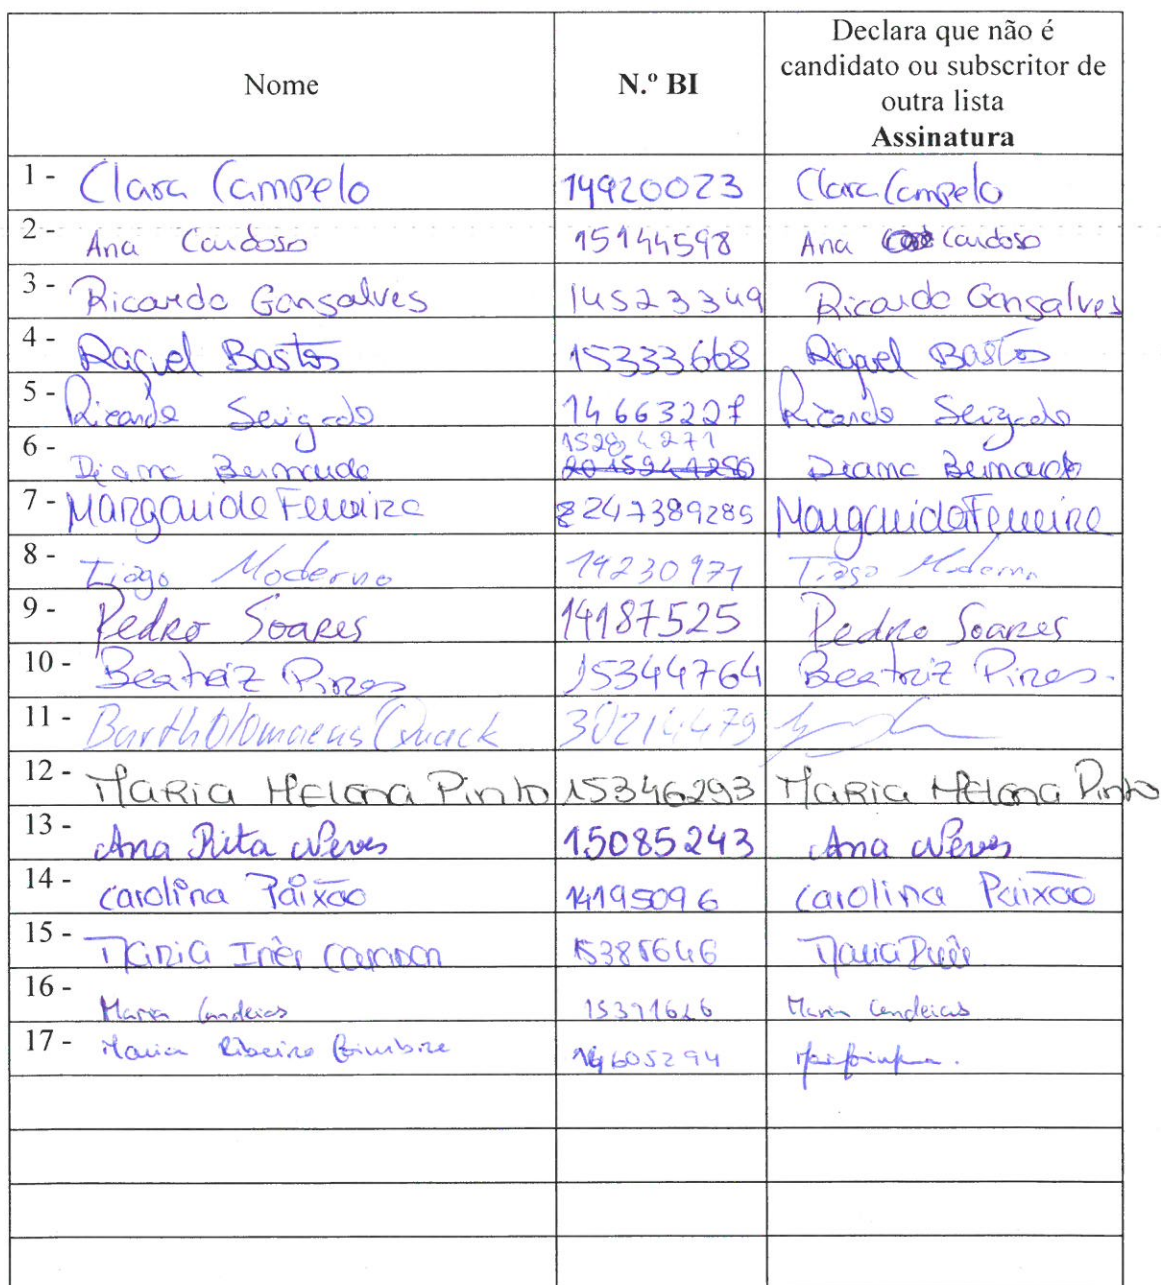 Nome
N.º BI
Declara que não é
candidato ou subscritor de
outra lista
Assinatura
1 - Clara Campelo 14920023 Clara Campelo
2 - Ana Cardoso 15144598 Ana Cardoso
3 - Ricardo Gonsalves 14523349 Ricardo Gonsalves
4 - Raquel Bastos 15333668 Raquel Bastos
5 - Ricardo 14663227 Ricardo
6 - Diana Bernardo 15284271 Diana Bernardo
7 - Margarida Ferreira 8247389285 Margarida Ferreira
8 - Tiago Moderno 14230971 Tiago Moderno
9 - Pedro Soares 14187525 Pedro Soares
10 - Beatriz Pires 15344764 Beatriz Pires.
11 - Bartholomaeus Quack 30214479
12 - Maria Helena Pinto 15346293 Maria Helena Pinto
13 - Ana Rita Neves 15085243 Ana Neves
14 - Carolina Paixão 14195096 Carolina Paixão
15 - Maria Inês 15385646 Maria Inês
16 - Maria Candeias Maria Candeias
17 - Maria Ribeiro 14605294